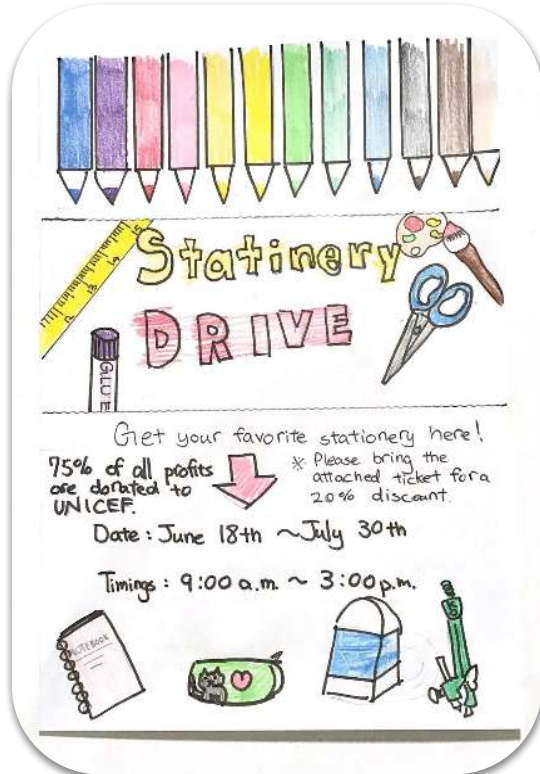 15
14
13
12
Statinery
DRIVE
GLUE
Get your favorite stationery here!
75% of all profits
are donated to
UNICEF.
※ Please bring the
attached ticket for a
20% discount.
Date : June 18th ~ July 30th
Timings : 9:00 a.m. ~ 3:00 p.m.
NOTEBOOK